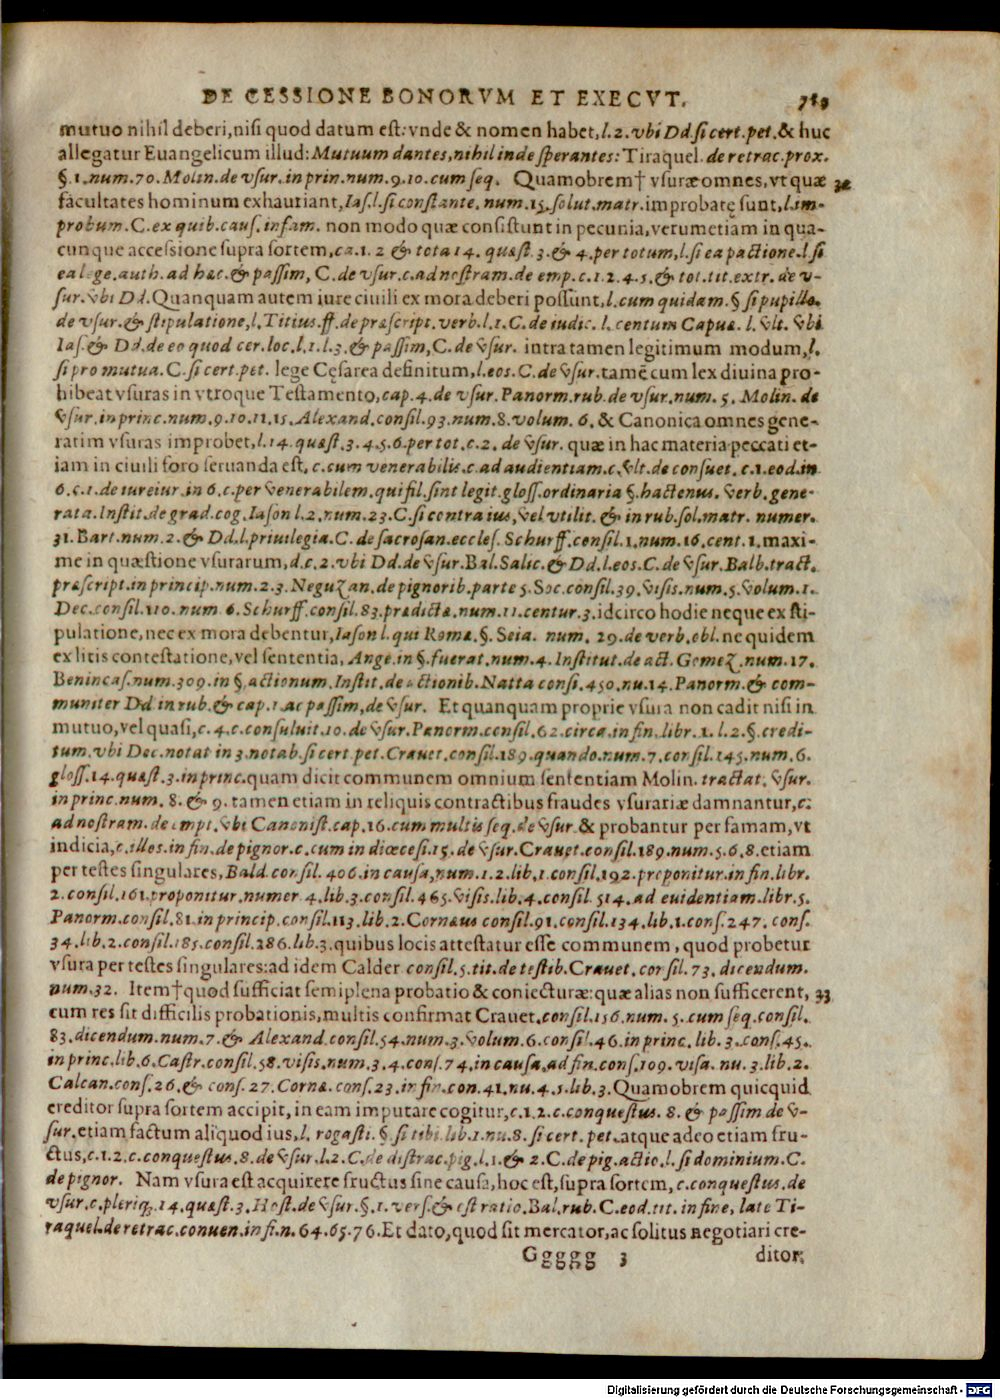 DE CESSIONE BONORVM ET EXECVT. 789
mutuo nihil deberi, nisi quod datum est: vnde & nomen habet, l. 2. vbi Dd. si cert. pet. & huc
allegatur Euangelicum illud: Mutuum dantes, nihil inde sperantes: Tiraquel. de retrac. prox.
§. 1. num. 70. Molin. de vsur. in prin. num. 9. 10. cum seq. Quamobrem† vsuræ omnes, vt quæ 32
facultates hominum exhauriant, Ias. l. si constante. num. 15. solut. matr. improbatę sunt, l. im-
probum. C. ex quib. caus. infam. non modo quæ consistunt in pecunia, verumetiam in qua-
cunque accessione supra sortem, ca. 1. 2 & tota 14. quæst. 3. & 4. per totum, l. si ea pactione. l. si
ea lege. auth. ad hæc. & passim, C. de vsur. c. ad nostram. de emp. c. 1. 2. 4. 5. & tot. tit. extr. de v-
sur. vbi Dd. Quanquam autem iure ciuili ex mora deberi possunt, l. cum quidam. § si pupillo.
de vsur. & stipulatione, l. Titius. ff. de præscript. verb. l. 1. C. de iudic. l. centum Capuæ. l. vlt. vbi
Ias. & Dd. de eo quod cer. loc. l. 1. l. 3. & passim, C. de vsur. intra tamen legitimum modum, l.
si pro mutua. C. si cert. pet. lege Cęsarea definitum, l. eos. C. de vsur. tamē cum lex diuina pro-
hibeat vsuras in vtroque Testamento, cap. 4. de vsur. Panorm. rub. de vsur. num. 5. Molin. de
vsur. in princ. num. 9. 10. 11. 15. Alexand. consil. 93. num. 8. volum. 6. & Canonica omnes gene-
ratim vsuras improbet, l. 14. quæst. 3. 4. 5. 6. per tot. c. 2. de vsur. quæ in hac materia peccati et-
iam in ciuili foro seruanda est, c. cum venerabilis. c. ad audientiam. c. vlt. de consuet. c. 1. eod. in
6. c. 1. de iureiur. in 6. c. per venerabilem. qui fil. sint legit. gloss. ordinaria §. hactenus. verb. gene-
rata. Instit. de grad. cog. Iason l. 2. num. 23. C. si contra ius, vel vtilit. & in rub. sol. matr. numer.
31. Bart. num. 2. & Dd. l. priuilegia. C. de sacrosan. eccles. Schurff. consil. 1. num. 16. cent. 1. maxi-
me in quæstione vsurarum, d. c. 2. vbi Dd. de vsur. Bal. Salic. & Dd. l. eos. C. de vsur. Balb. tract.
præscript. in princip. num. 2. 3. Neguzan. de pignorib. parte 5. Soc. consil. 39. visis. num. 5. volum. 1.
Dec. consil. 110. num. 6. Schurff. consil. 83. prædicta. num. 11. centur. 3. idcirco hodie neque ex sti-
pulatione, nec ex mora debentur, Iason l. qui Romæ. §. Seia. num. 29. de verb. obl. ne quidem
ex litis contestatione, vel sententia, Ange. in §. fuerat. num. 4. Institut. de act. Gomez. num. 17.
Benincas. num. 309. in §. actionum. Instit. de actionib. Natta consi. 450. nu. 14. Panorm. & com-
muniter Dd in rub. & cap. 1. ac passim, de vsur. Et quanquam proprie vsura non cadit nisi in
mutuo, vel quasi, c. 4. c. consuluit. 10. de vsur. Panorm. consil. 62. circa. in fin. libr. 1. l. 2. §. credi-
tum. vbi Dec. notat in 3. notab. si cert. pet. Crauet. consil. 189. quando. num. 7. consil. 145. num. 6.
gloss. 14. quæst. 3. in princ. quam dicit communem omnium sententiam Molin. tractat. vsur.
in princ. num. 8. & 9. tamen etiam in reliquis contractibus fraudes vsurariæ damnantur, c.
ad nostram. de empt. vbi Canonist. cap. 16. cum multis seq. de vsur. & probantur per famam, vt
indicia, c. illos. in fin. de pignor. c. cum in diœcesi. 15. de vsur. Crauet. consil. 189. num. 5. 6. 8. etiam
per testes singulares, Bald. consil. 406. in causa, num. 1. 2. lib. 1. consil. 192. proponitur. in fin. libr.
2. consil. 161. proponitur. numer. 4. lib. 3. consil. 465. visis. lib. 4. consil. 514. ad euidentiam. libr. 5.
Panorm. consil. 81. in princip. consil. 113. lib. 2. Cornæus consil. 91. consil. 134. lib. 1. cons. 247. cons.
34. lib. 2. consil. 185. consil. 286. lib. 3. quibus locis attestatur esse communem, quod probetur
vsura per testes singulares: ad idem Calder consil. 5. tit. de testib. Crauet. consil. 73. dicendum.
num. 32. Item† quod sufficiat semiplena probatio & coniecturæ: quæ alias non sufficerent, 33
cum res sit difficilis probationis, multis confirmat Crauet. consil. 156. num. 5. cum seq. consil.
83. dicendum. num. 7. & Alexand. consil. 54. num. 3. volum. 6. consil. 46. in princ. lib. 3. cons. 45.
in princ. lib. 6. Castr. consil. 58. visis. num. 3. 4. cons. 74. in causa. ad fin. cons. 109. visa. nu. 3. lib. 2.
Calcan. cons. 26. & cons. 27. Cornæ. cons. 23. in fin. con. 41. nu. 4. 5. lib. 3. Quamobrem quicquid
creditor supra sortem accipit, in eam imputare cogitur, c. 1. 2. c. conquestus. 8. & passim de v-
sur. etiam factum aliquod ius, l. rogasti. §. si tibi. lib. 1. nu. 8. si cert. pet. atque adeo etiam fru-
ctus, c. 1. 2. c. conquestus. 8. de vsur. l. 2. C. de distrac. pig. l. 1. & 2. C. de pig. actio. l. si dominium. C.
de pignor. Nam vsura est acquirere fructus sine causa, hoc est, supra sortem, c. conquestus. de
vsur. c. pleriq. 14. quæst. 3. Host. de vsur. §. 1. vers. & est ratio. Bal. rub. C. eod. tit. in fine, late Ti-
raquel. de retrac. conuen. in fi. n. 64. 65. 76. Et dato, quod sit mercator, ac solitus negotiari cre-
Ggggg 3 ditor,
Digitalisierung gefördert durch die Deutsche Forschungsgemeinschaft - DFG